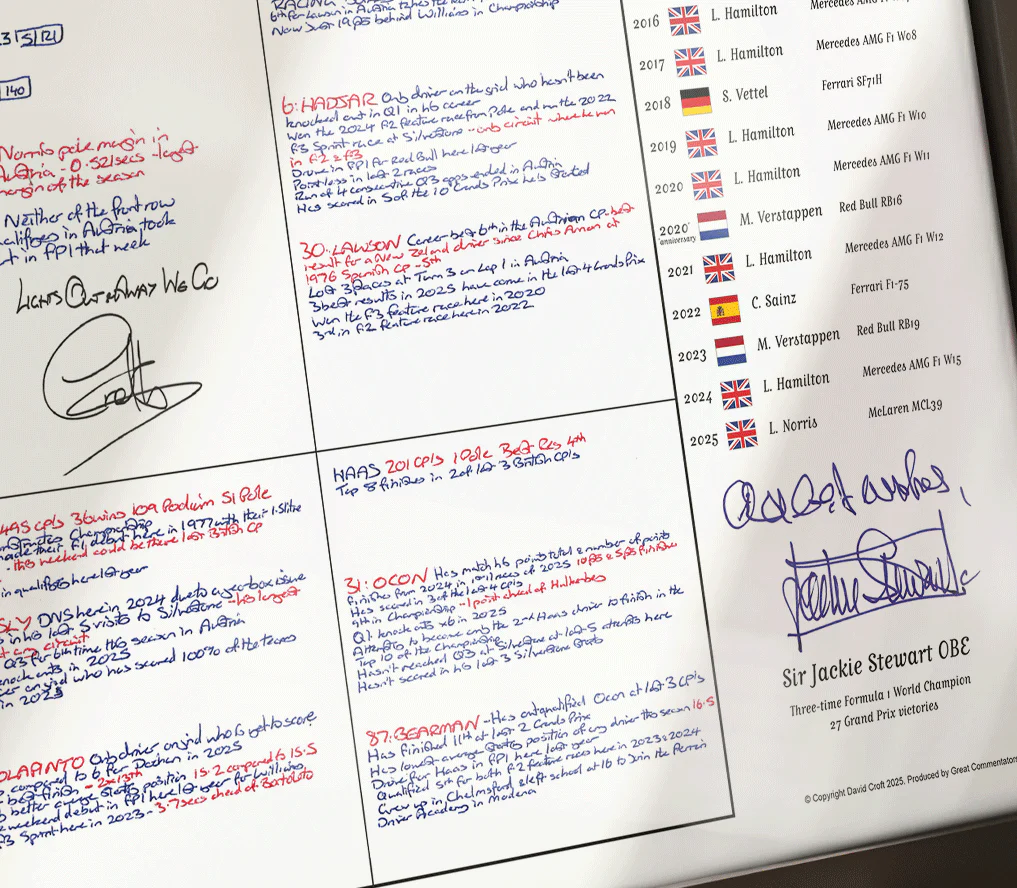 RACING
6th for Lawson in Austria takes the
Now Just 19pts behind Williams in Championship
3 S/R1
140
Norris pole margin in
Austria - 0.521secs - largest
margin of the season
Neither of the front row
qualifiers in Austria took
part in FP1 that week
LIGHTS OUT AND AWAY WE GO
Croft
6: HADJAR Only driver on the grid who hasn't been
knocked out in Q1 in his career
Won the 2024 F2 feature race from Pole and won the 2022
F3 Sprint race at Silverstone - only circuit where he won
in F2 & F3
Drove in FP1 for Red Bull here last year
Pointless in last 2 races
Run of 4 consecutive Q3 apps ended in Austria
Has scored in 5 of the 10 Grands Prix he's started
30: LAWSON Career best 6th in the Austrian GP - best
result for a New Zealand driver since Chris Amon at
1976 Spanish Gp - 5th
Lost 3 places at Turn 3 on Lap 1 in Austria
3 best results in 2025 have come in the last 4 Grands Prix
Won the F3 feature race here in 2020
3rd in F2 feature race here in 2022
GPs 36 wins 109 Podium 51 Pole
Championship
made their F1 debut here in 1977 with their 1.5 litre
- this weekend could be there last British GP
in qualifying here last year
DNS here in 2024 due to a gearbox issue
in his last 5 visits to Silverstone - his longest
at any circuit
Q3 for 6th time this season in Austria
knock outs in 2025
driver on grid who has scored 100% of the teams
in 2025
COLAPINTO Only driver on grid who is yet to score
compared to 6 for Doohan in 2025
best finish - 2x 13th
better average starting position 15.2 compared to 15.5
weekend debut in FP1 here last year for Williams
F3 Sprint here in 2023 - 3.7secs ahead of Bortoleto
HAAS 201 GPs 1 Pole Best Res 4th
Top 8 finishes in 2 of last 3 British GPs
31: OCON Has match his points total & number of points
finishes from 2024 in 1st 11 races of 2025
Has scored in 3 of the last 4 GPs
9th in Championship - 1 point ahead of Hulkenberg
Q1 knock outs x6 in 2025
Attempting to become only the 2nd Haas driver to finish in the
Top 10 of the Championship
Hasn't reached Q3 at Silverstone at last 5 attempts here
Hasn't scored in his last 3 Silverstone starts
87: BEARMAN - Has outqualified Ocon at last 3 GPs
Has finished 11th at last 2 Grands Prix
Has lowest average starting position of any driver this season 16.5
Drove for Haas in FP1 here last year
Qualified 5th for both F2 feature races here in 2023 & 2024
Grew up in Chelmsford & left school at 16 to join the Ferrari
Driver Academy in Modena
2016 L. Hamilton Mercedes AMG F1
2017 L. Hamilton Mercedes AMG F1 W08
2018 S. Vettel Ferrari SF71H
2019 L. Hamilton Mercedes AMG F1 W10
2020 L. Hamilton Mercedes AMG F1 W11
2020 M. Verstappen Red Bull RB16
anniversary
2021 L. Hamilton Mercedes AMG F1 W12
2022 C. Sainz Ferrari F1-75
2023 M. Verstappen Red Bull RB19
2024 L. Hamilton Mercedes AMG F1 W15
2025 L. Norris McLaren MCL39
best wishes,
Jackie Stewart
Sir Jackie Stewart OBE
Three-time Formula 1 World Champion
27 Grand Prix victories
© Copyright David Croft 2025. Produced by Great Commentators